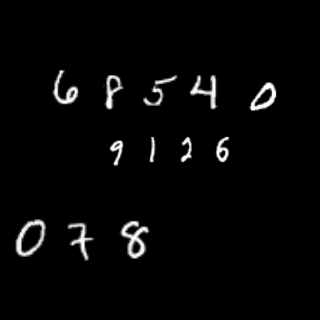 6 8 5 4 0
9 1 2 6
0 7 8